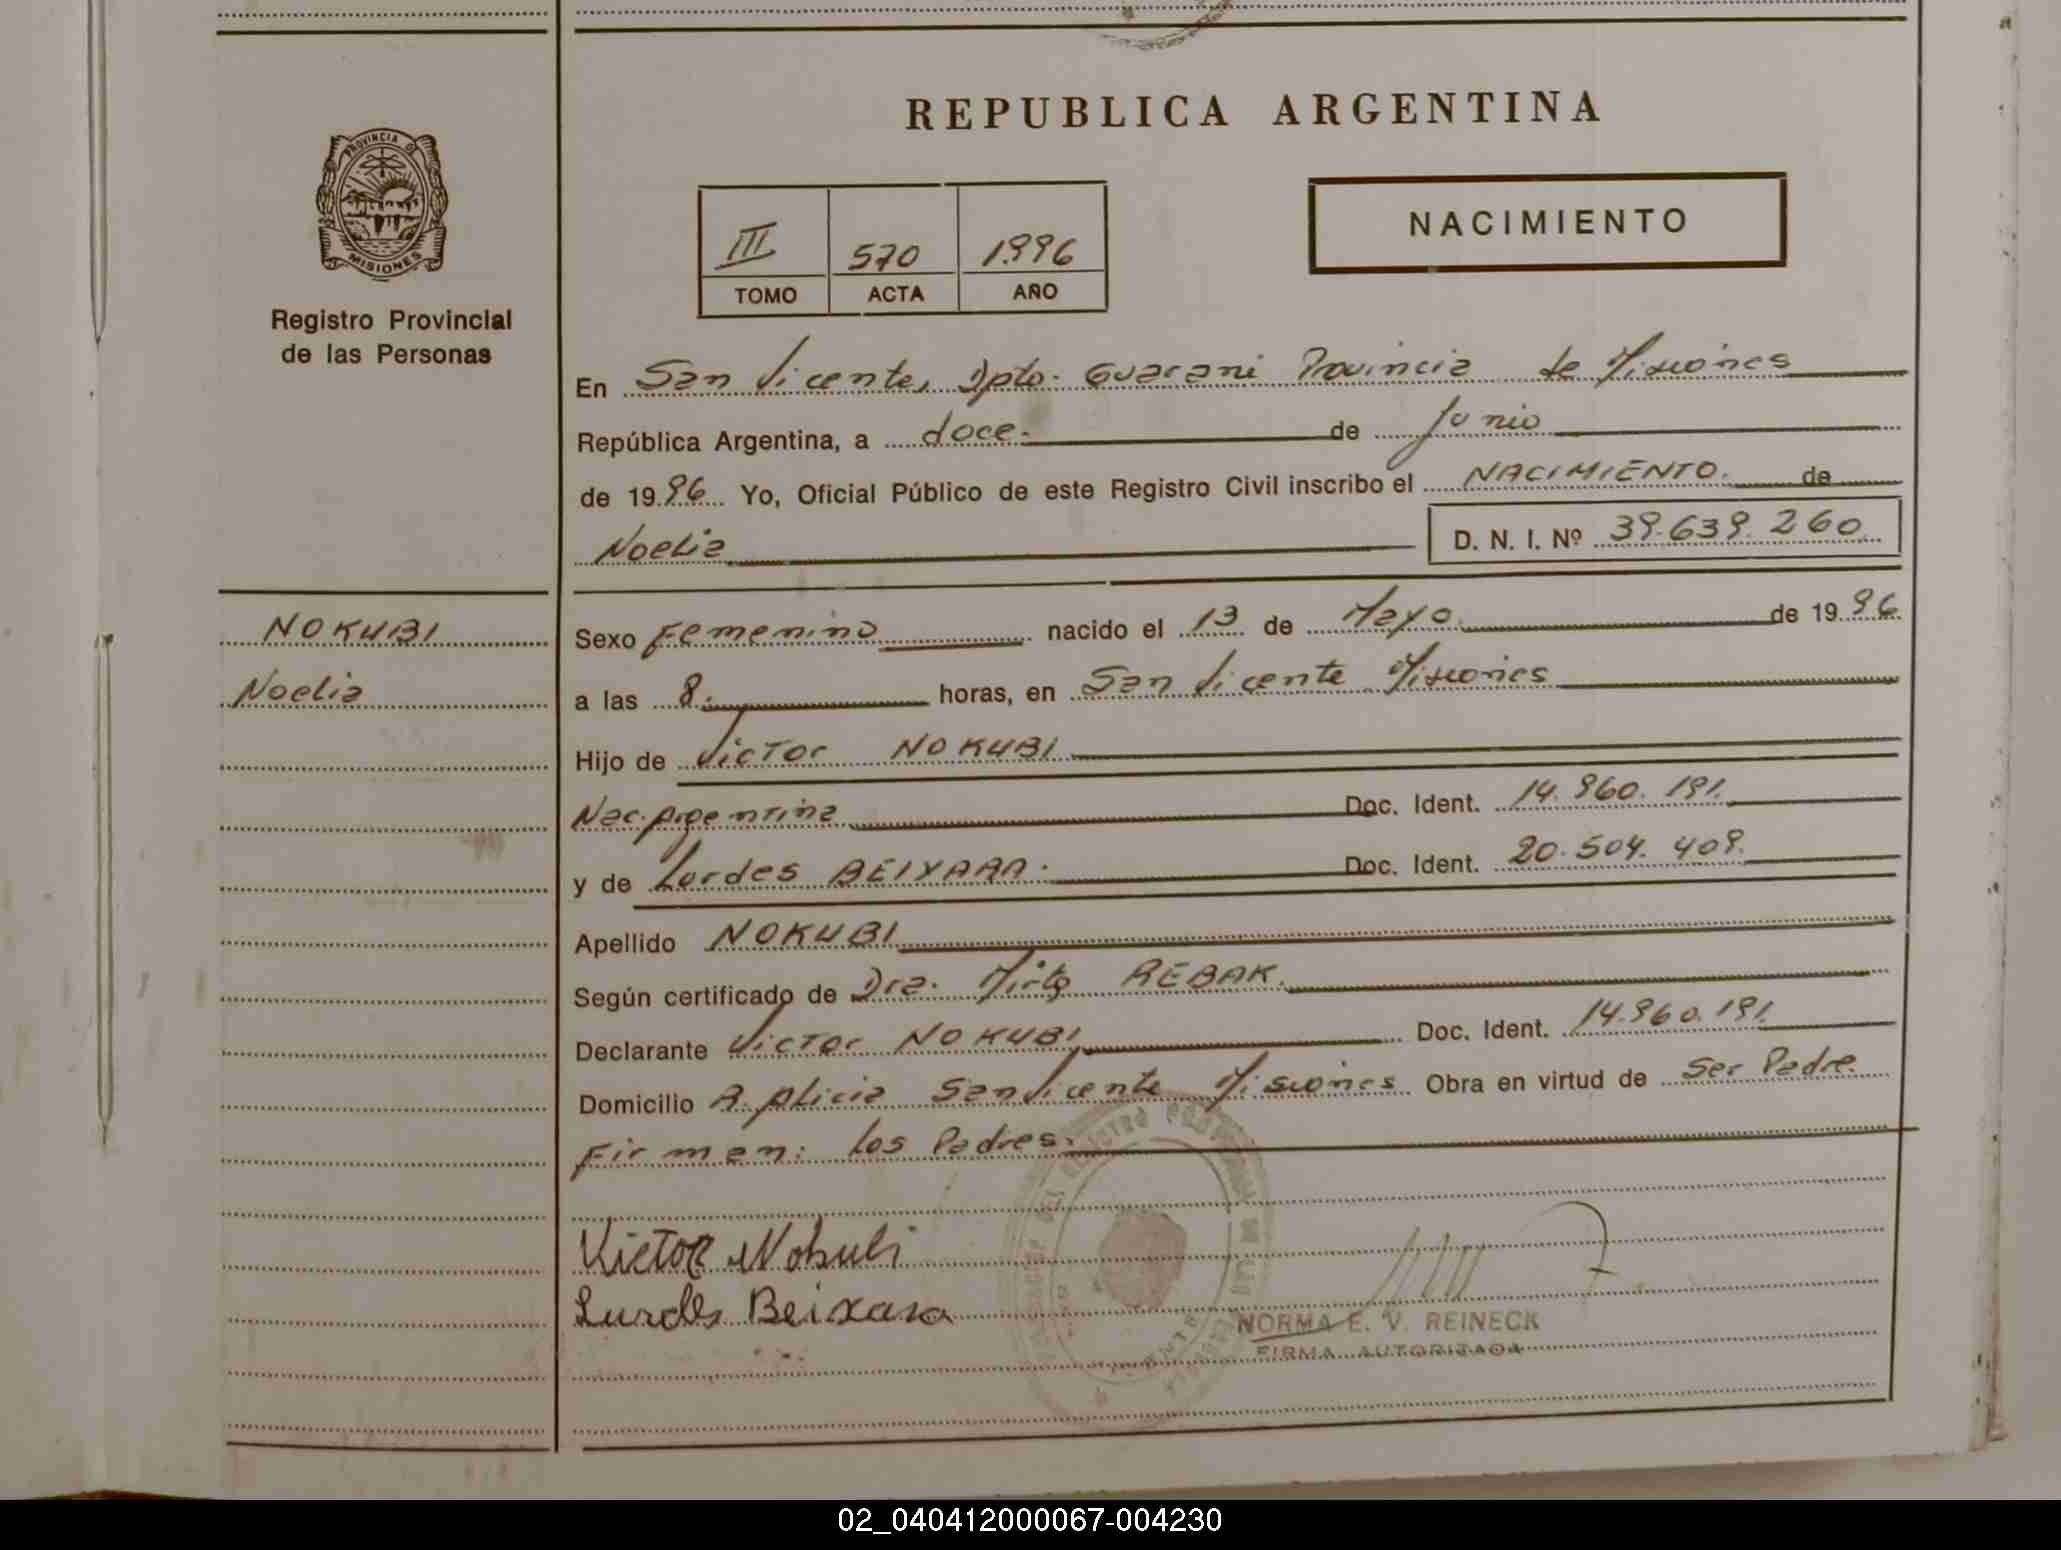 REPUBLICA ARGENTINA
PROVINCIA D
MISIONES
Registro Provincial
de las Personas
III 570 1996
TOMO ACTA AÑO
NACIMIENTO
En San Vicente, Dpto. Guarani Provincia de Misiones
República Argentina, a doce. de Junio
de 1996 Yo, Oficial Público de este Registro Civil inscribo el NACIMIENTO. de
Noelia D. N. I. Nº 39.639.260
NOKUBI
Noelia
Sexo Femenino nacido el 13 de Mayo. de 1996
a las 8. horas, en San Vicente Misiones
Hijo de Victor NOKUBI
Nac. Argentina Doc. Ident. 14.960.191.
y de Lurdes BEIXARA. Doc. Ident. 20.504.409.
Apellido NOKUBI
Según certificado de Dra. Mirta REBAK.
Declarante Victor NOKUBI Doc. Ident. 14.960.191.
Domicilio A. Alicia San Vicente Misiones Obra en virtud de Ser Padre.
Firman: los Padres.
Victor Nokubi
Lurdes Beixara
NORMA E. V. REINECK
FIRMA AUTORIZADA
02_040412000067-004230